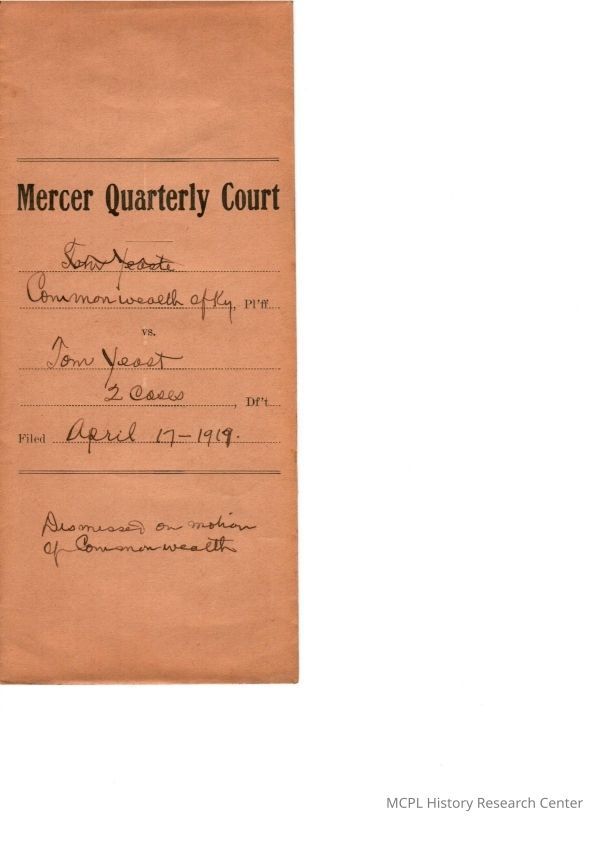 Mercer Quarterly Court
Tom Yeaste
Commonwealth of Ky, Pl'ff.
vs.
Tom Yeast
2 Cases, Df't.
Filed April 17-1919.
Dismessed on motion
of Commonwealth
MCPL History Research Center